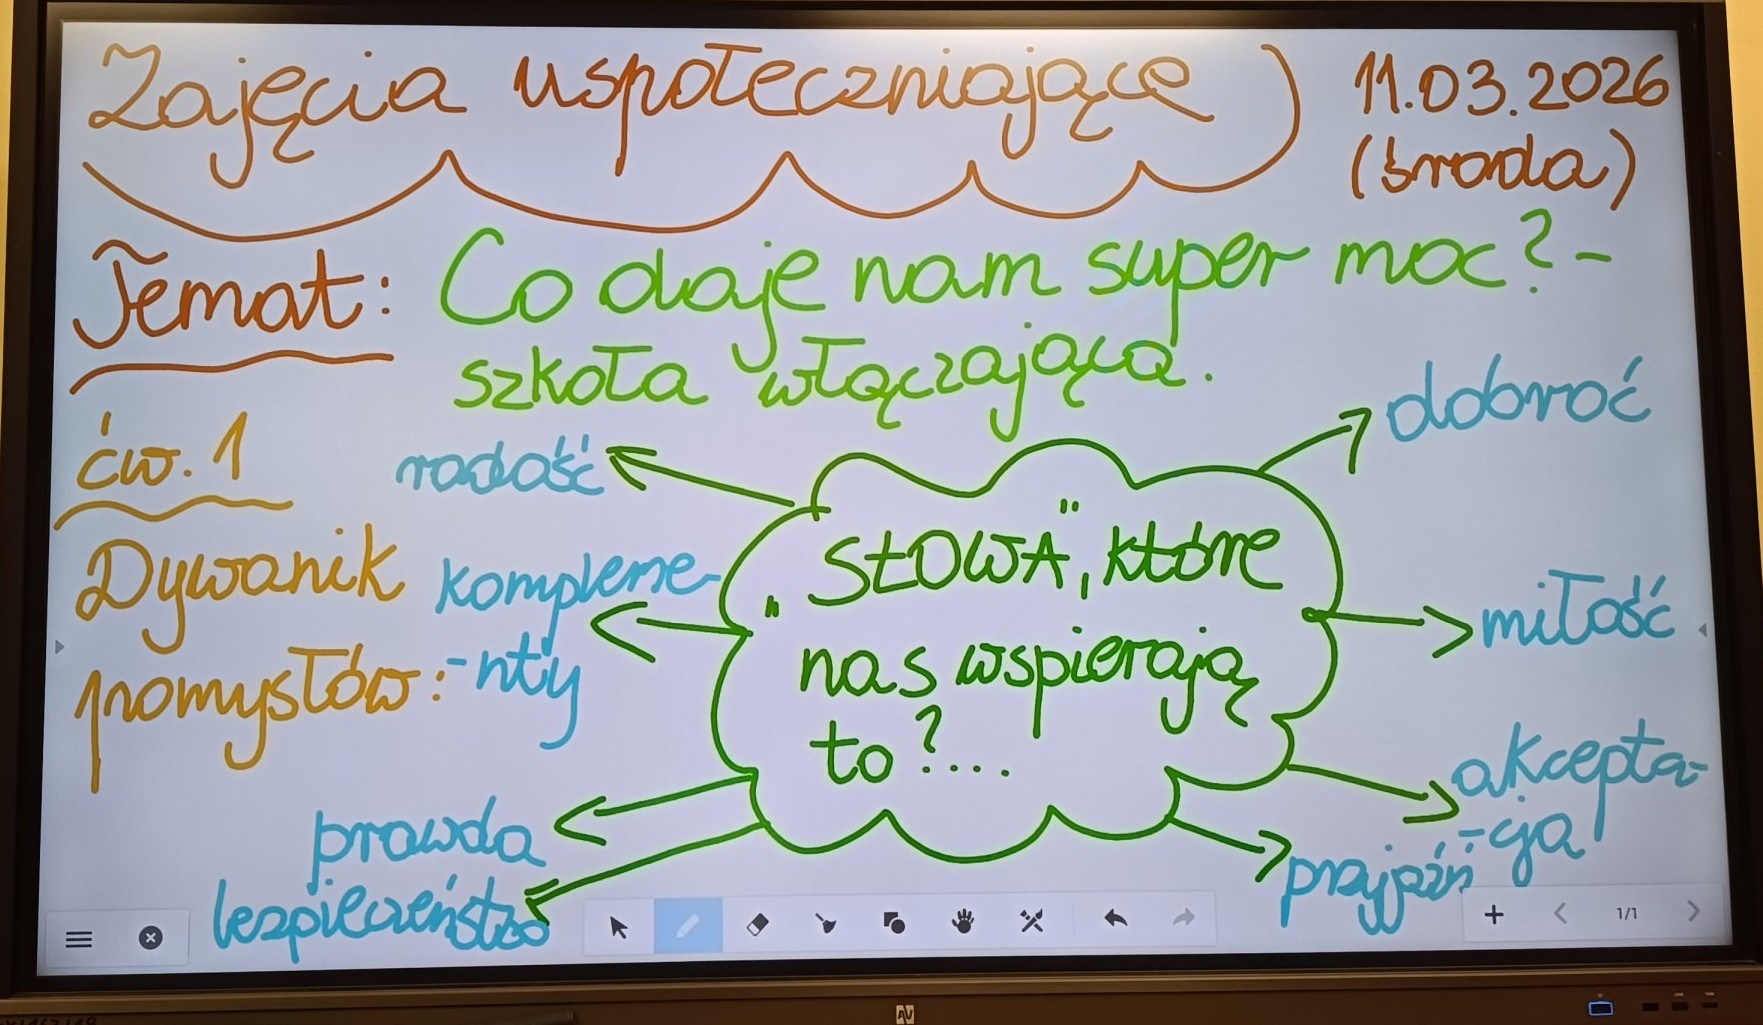 Zajęcia uspołeczniające
11.03.2026
(środa)
Temat: Co daje nam super moc? -
szkoła włączająca.
ćw. 1
Dywanik
pomysłów:
"SŁOWA", które
nas wspierają
to?....
radość
ompleme-
-nty
prawda
bezpieczeństwo
dobroć
miłość
akcepta-
-cja
przyjaźń
1/1